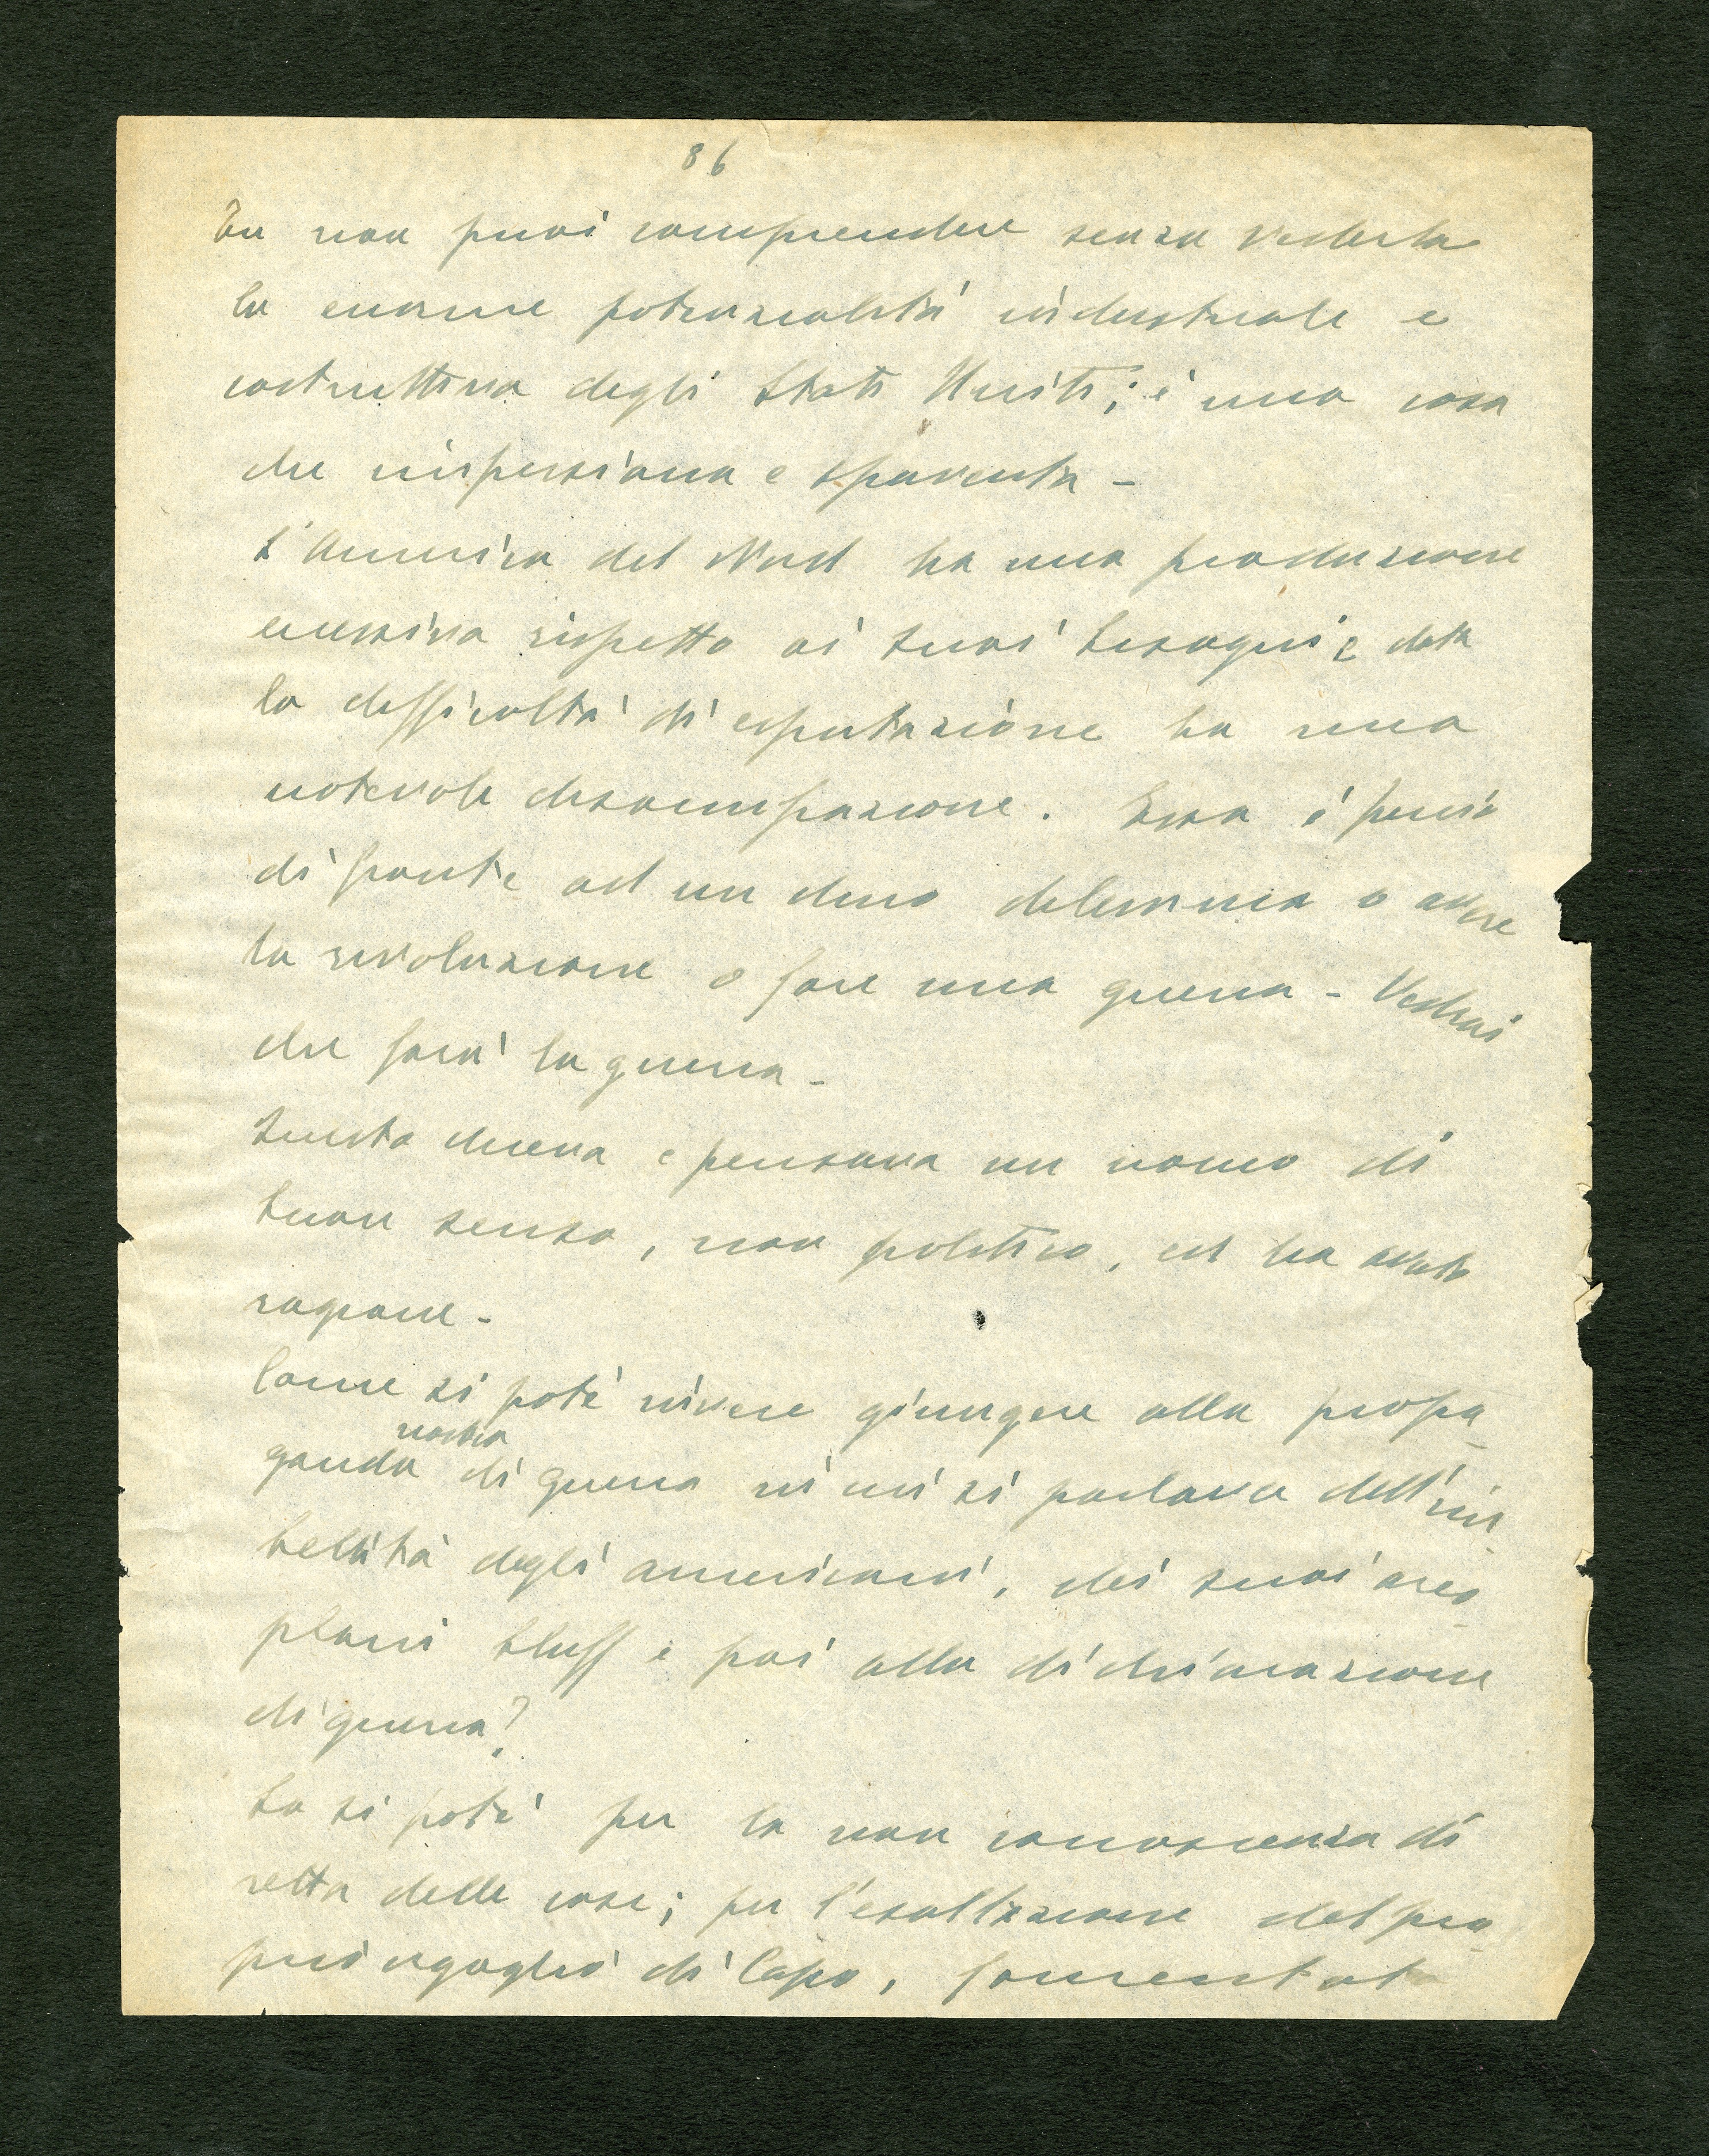 86
Tu non puoi comprendere senza vederla
la enorme potenzialità industriale e
costruttiva degli Stati Uniti; è una cosa
che impressiona e spaventa -
L'America del Nord ha una produzione
eccessiva rispetto ai suoi bisogni e data
la difficoltà di esportazione ha una
notevole disoccupazione. Essa è perciò
di fronte ad un duro dilemma o avere
la rivoluzione o fare una guerra - Vedrai
che farà la guerra -
Questo diceva e pensava un uomo di
buon senso, non politico, ed ha avuto
ragione -
Come si potè invece giungere alla propa
nostra
ganda di guerra in cui si parlava dell'im
bellità degli americani, dei suoi areo
plani bluff e poi alla dichiarazione
di guerra?
Lo si potè per la non conoscenza di
retta delle cose; per l'esaltazione del pro
prio orgoglio di Capo, fomentato